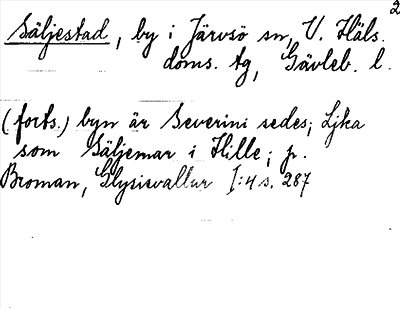 2
Säljestad, by i Järvsö sn, V. Häls.
doms. tg, Gävleb. l.
(forts.) byn är Severini sedes; Ljka
som Säljemar i Hille; p.
Broman, Glysisvallur I:4 s. 287